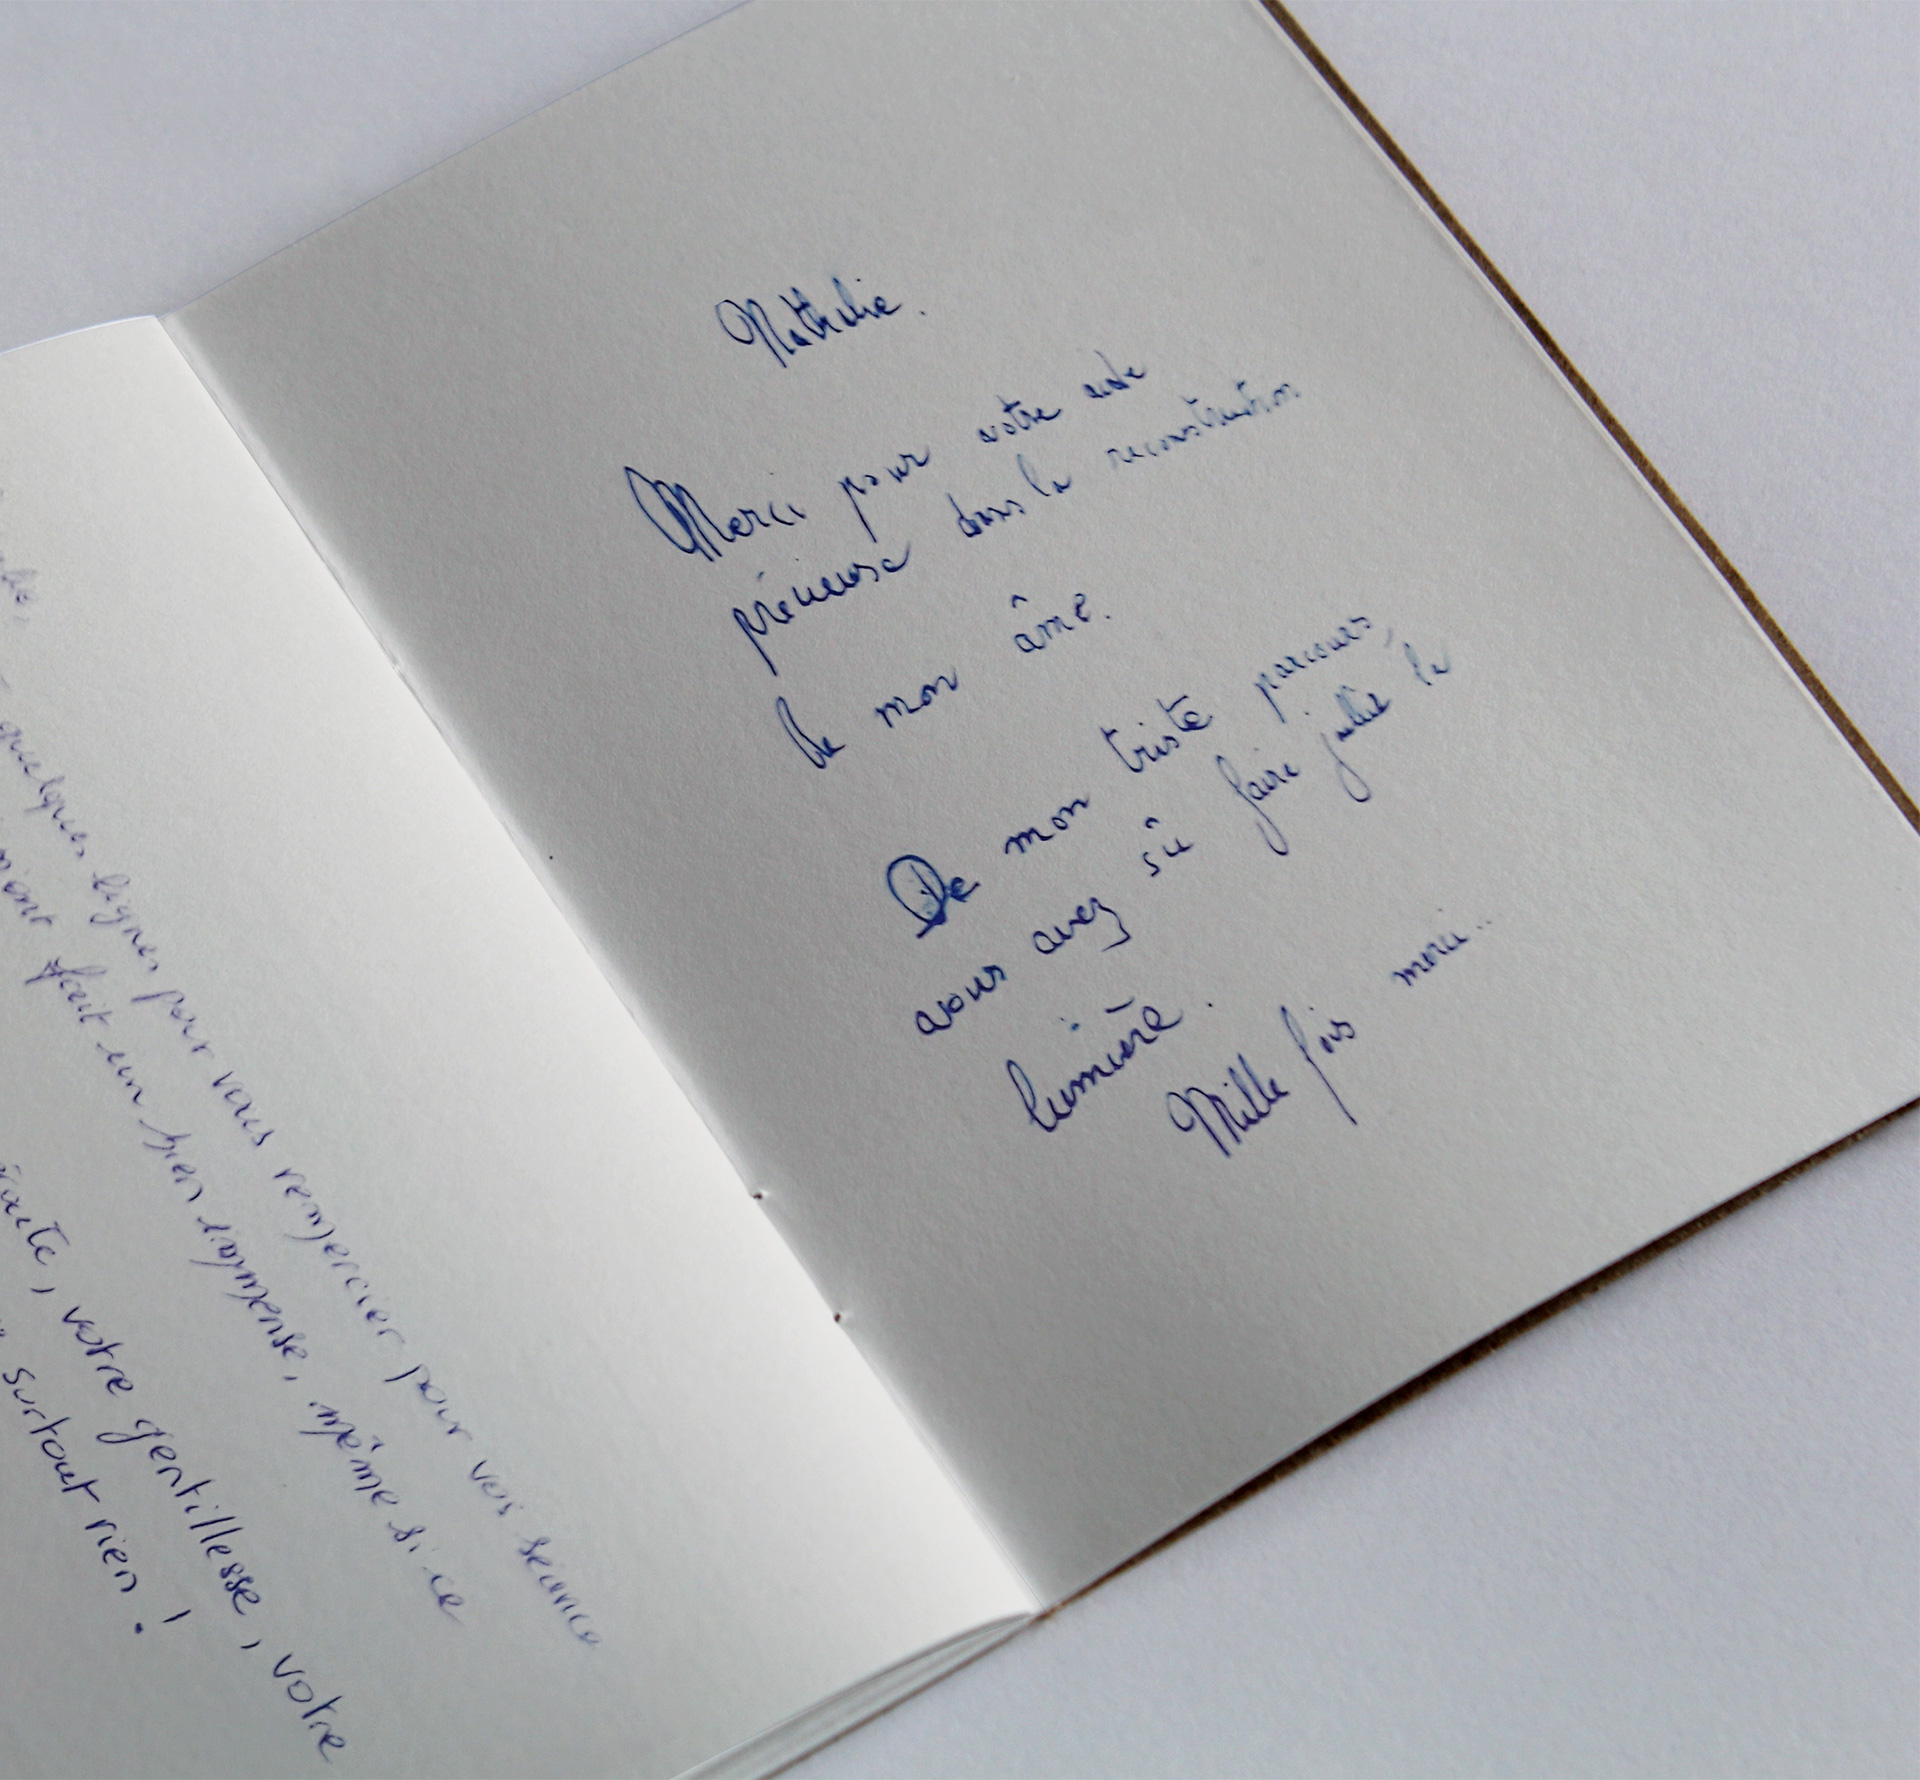 quelques lignes pour vous remercier pour vos séance
fait un bien immense, même si ce
écoute, votre gentillesse, votre
surtout rien !
Nathalie.
Merci pour votre aide
précieuse dans la reconstruction
de mon âme.
De mon triste parcours,
vous avez sû faire jaillir la
lumière.
Mille fois merci...